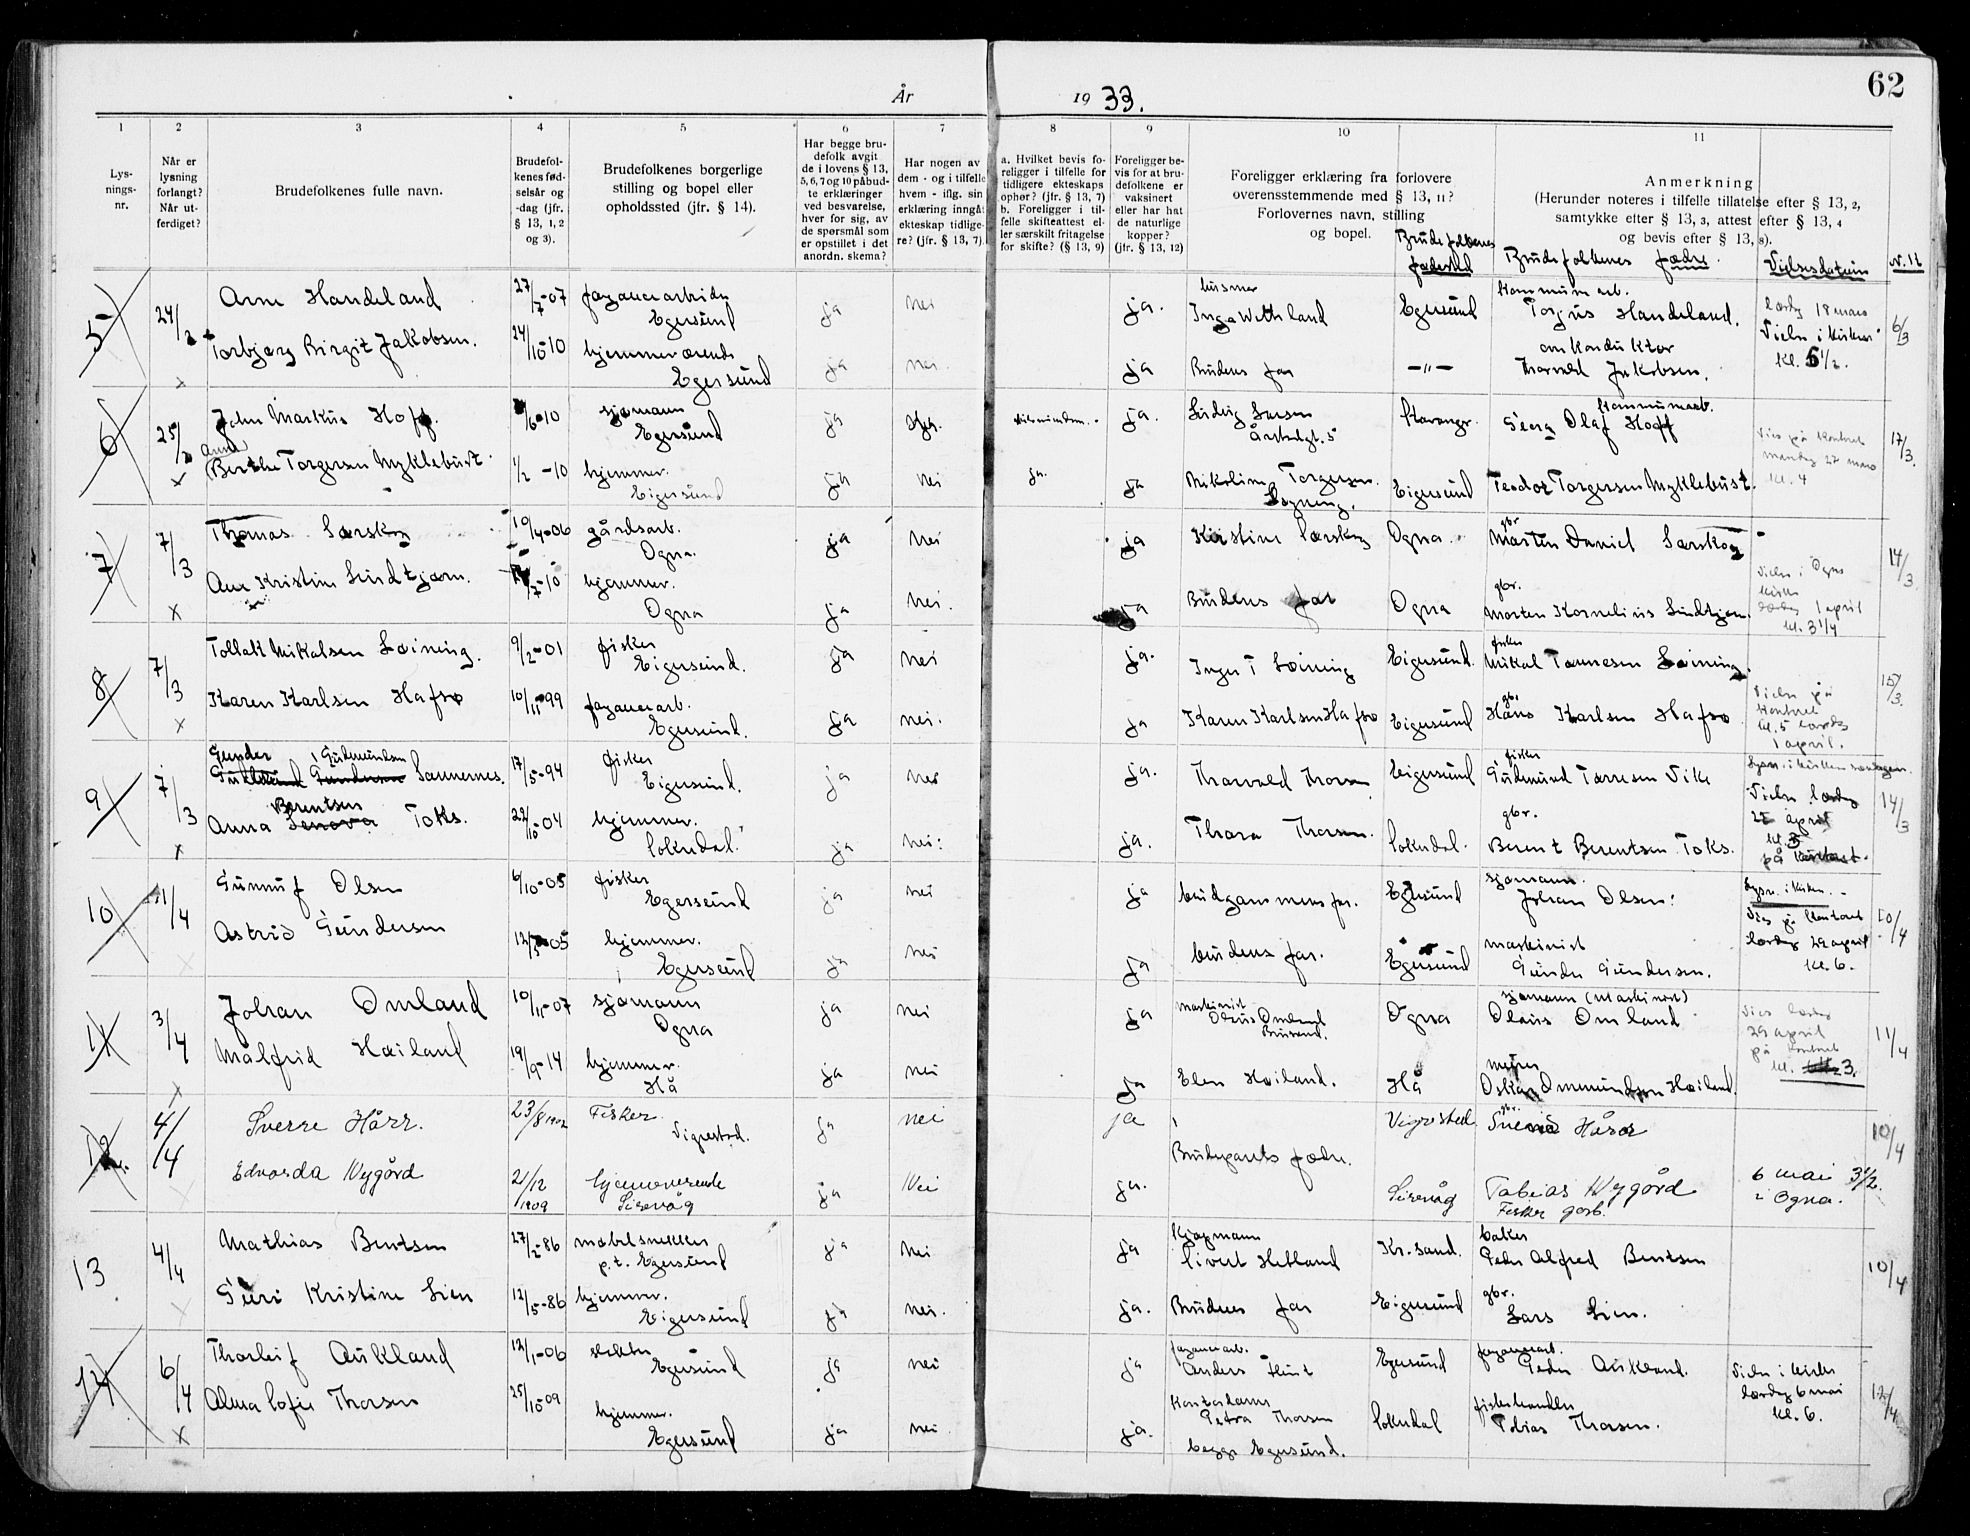 62
År 1933.
1 2 3 4 5 6 7 8 9 10 11
Lys-
nings-
nr.
Når er
lysning
forlangt?
Når ut-
ferdiget?
Brudefolkenes fulle navn.
Brudefol-
kenes fød-
selsår og
-dag (jfr.
§ 13, 1, 2
og 3).
Brudefolkenes borgerlige
stilling og bopel eller
opholdssted (jfr. § 14).
Har begge bru-
defolk avgit
de i lovens § 13,
5, 6, 7 og 10 påbud-
te erklæringer
ved besvarelse,
hver for sig, av
de spørsmål som
er opstillet i det
anordn. skema?
Har nogen av
dem - og i tilfelle
hvem - iflg. sin
erklæring inngåt
ekteskap tidlige-
re? (jfr. § 13, 7).
a. Hvilket bevis fo-
religger i tilfelle for
tidligere ekteskaps
ophør? (jfr. § 13, 7)
b. Foreligger i til-
felle skifteattest el-
ler særskilt fritagelse
for skifte? (§ 13, 9)
Foreligger be-
vis for at bru-
defolkene er
vaksinert
eller har hat
de naturlige
kopper?
(jfr. § 13, 12)
Foreligger erklæring fra forlovere
overensstemmende med § 13, 11?
Forlovernes navn, stilling
og bopel.
Brudefolkenes
fødested
Anmerkning
(Herunder noteres i tilfelle tillatelse efter § 13, 2,
samtykke efter § 13, 3, attest efter § 13, 4
og bevis efter § 13, 8).
Brudefolkenes fædre.
Vielsesdatum
5 24/2 Arne Handeland 27/7-07 fayancearbeider Egersund ja nei ja. Inga Wethland Egersund kommunearb. Torjus Handeland. lørdag 18 mars 6/3
Torbjørg Birgit Jakobsen. 24/10-10 hjemmeværende Egersund ja nei ja Brudens far —"— Thorvald Jakobsen. Vielse i kirken kl. 5 1/2.
6 25/2 John Markus Hoff. /6-10 sjømann Egersund ja ja. Ludvig Larsen Stavanger. kommunearb. Georg Olaf Hoff 17/3.
Anna
Berthe Torgersen Myklebust. 1/2-10 hjemmev. Eigersund ja nei ja. ja Nikoline Torgersen Eigersund Teodor Torgersen Myklebust. Vies på kontoret mandag 27 mars kl. 4
7 7/3 Thomas Særskog 10/4-06 gårdsarb. Ogna. ja nei ja Kirstine Særskog Ogna gbr. Morten Daniel Særskog 14/3
Ane Kristine Lindtjørn. /7-10 hjemmev. Ogna ja nei. ja Brudens far Ogna gbr. Morten Kornelius Lindtjørn. Vielse i Ogna kirke lørdag 1 april kl. 3 1/4
8 7/3 Tollak Mikalsen Løining. 9/2-01 fisker Eigersund. ja nei ja. Inger T Løining Eigersund. fisker Mikal Tønnesen Løining. 15/3
Karen Karlsen Hafsø 10/11-99 fayancearb. Egersund. ja nei. ja Karen Karlsen Hafsø Eigersund gbr. Hans Karlsen Hafsø Vielse på kontoret kl. 5 lørdag 1 april.
9 7/3 Gunder Gudmundsen Sannernes. 17/5-94 fisker Eigersund. ja nei ja. Thorvald Thorsen Eigersund fisker Gudmund Tønnesen Vike 14/3
Berentsen
Anna Toks. 22/10-04 hjemmev. Sokndal. ja nei. ja. Thora Thorsen. Sokndal. gbr. Berent Berentsen Toks. Vielse lørdag 25 april
10 11/4 Gunnuf Olsen 6/10-05 fisker Egersund ja nei ja brudgommens far. Egersund sjømann. Johan Olsen. Lysn. i kirken. 10/4
Astrid Gundersen 12/3-05 hjemmev. Egersund ja nei ja brudens far. Egersund maskinist Gunder Gundersen. Vies på kontoret lørdag 29 april kl. 6.
11 3/4 Johan Omland 10/11-07 sjømann Ogna ja nei ja maskinist Olaus Omland Brusand. Ogna sjømann (maskinist) Olaus Omland 11/4
Målfrid Høiland 19/9-14 hjemmev. Hå ja nei ja Elen Høiland. Hå murer Oskar Ommundsen Høiland. Vies lørdag 29 april på kontoret kl. 3.
12. 4/4 Sverre Hårr. 23/8 1902 Fisker. Vigrestad. ja nei ja Brudeparets fædre. Vigrestad gbr. Hårr 10/4
Edvarda Nygård 21/12 1909 hjemmeværende Sirevåg ja Nei ja. Sirevåg Tobias Nygård Fisker gårdb. 6 mai 3 1/2. i Ogna.
13 4/4 Mathias Bentsen 27/2-86 møbelsnekker p.t. Egersund ja nei ja Kjøpmann Sivert Hetland Kr.sand. baker Peder Alfred Bentsen 10/4
Guri Kristine Lien 12/5-86 hjemmev. Eigersund ja nei. ja. Brudens far Eigersund gbr. Lars Lien.
14 6/4 Thorleif Aukland 12/1-06 Egersund ja nei ja fayancearb. Anders Egersund fayancearb. Peder Aukland. 12/4
Alma Sofie Thorsen 25/10-09 hjemmev. Egersund ja nei ja. Kontordame Petra Thorsen Sokndal fiskehandler Tobias Thorsen. Vielse i kirken lørdag 6 mai kl. 6.
begge Egersund.